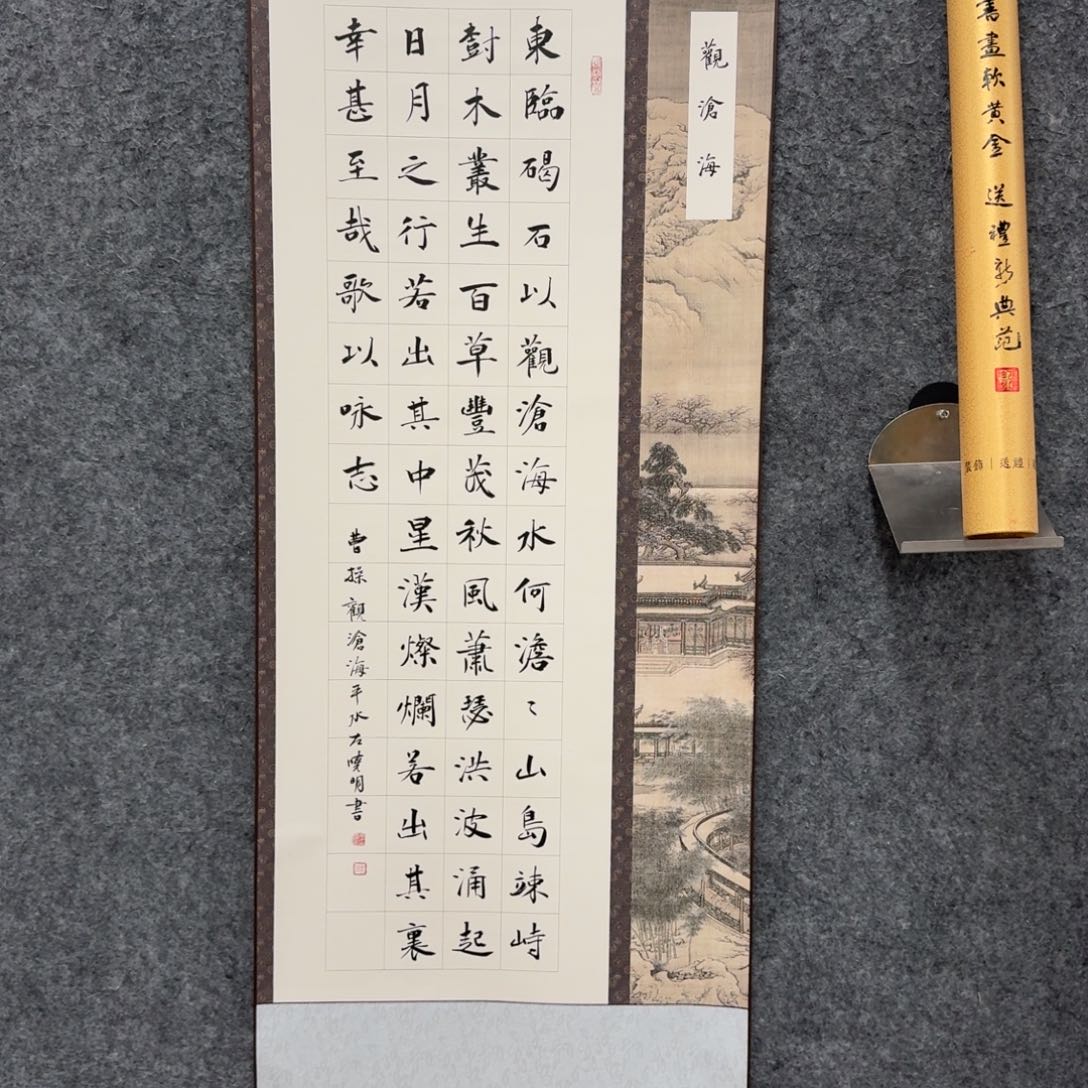 東臨碣石以觀滄海水何澹〻山島竦峙
樹木叢生百草豐茂秋風蕭瑟洪波涌起
日月之行若出其中星漢燦爛若出其裏
幸甚至哉歌以咏志
曹操觀滄海平水左曉明書
觀滄海
書畫軟黃金 送禮新典范
裝飾 | 送禮 |